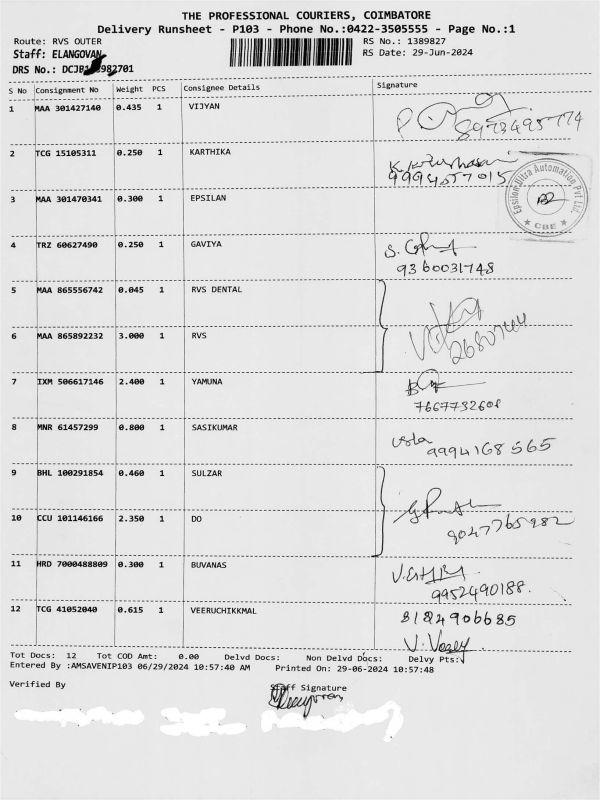 THE PROFESSIONAL COURIERS, COIMBATORE
Delivery Runsheet - P103 - Phone No.:0422-3505555 - Page No.:1
Route: RVS OUTER RS No.: 1389827
Staff: ELANGOVAN RS Date: 29-Jun-2024
DRS No.: 982701
S No Consignment No Weight PCS Consignee Details Signature
1 MAA 301427140 0.435 1 VIJYAN
8973495774
2 TCG 15105311 0.250 1 KARTHIKA
9994557015
Epsilon Ultra Automation Pvt Ltd
★ CBE ★
3 MAA 301470341 0.300 1 EPSILAN
4 TRZ 60627490 0.250 1 GAVIYA
9360031748
5 MAA 865556742 0.045 1 RVS DENTAL
6 MAA 865892232 3.000 1 RVS
7 IXM 506617146 2.400 1 YAMUNA
7667732608
8 MNR 61457299 0.800 1 SASIKUMAR
usla 9994168565
9 BHL 100291854 0.460 1 SULZAR
10 CCU 101146166 2.350 1 DO
9047765982
11 HRD 7000488809 0.300 1 BUVANAS
9952490188.
12 TCG 41052040 0.615 1 VEERUCHIKKMAL
8124906685
Tot Docs: 12 Tot COD Amt: 0.00 Delvd Docs: Non Delvd Docs: Delvy Pts:
Entered By :AMSAVENIP103 06/29/2024 10:57:40 AM Printed On: 29-06-2024 10:57:48
Verified By Staff Signature